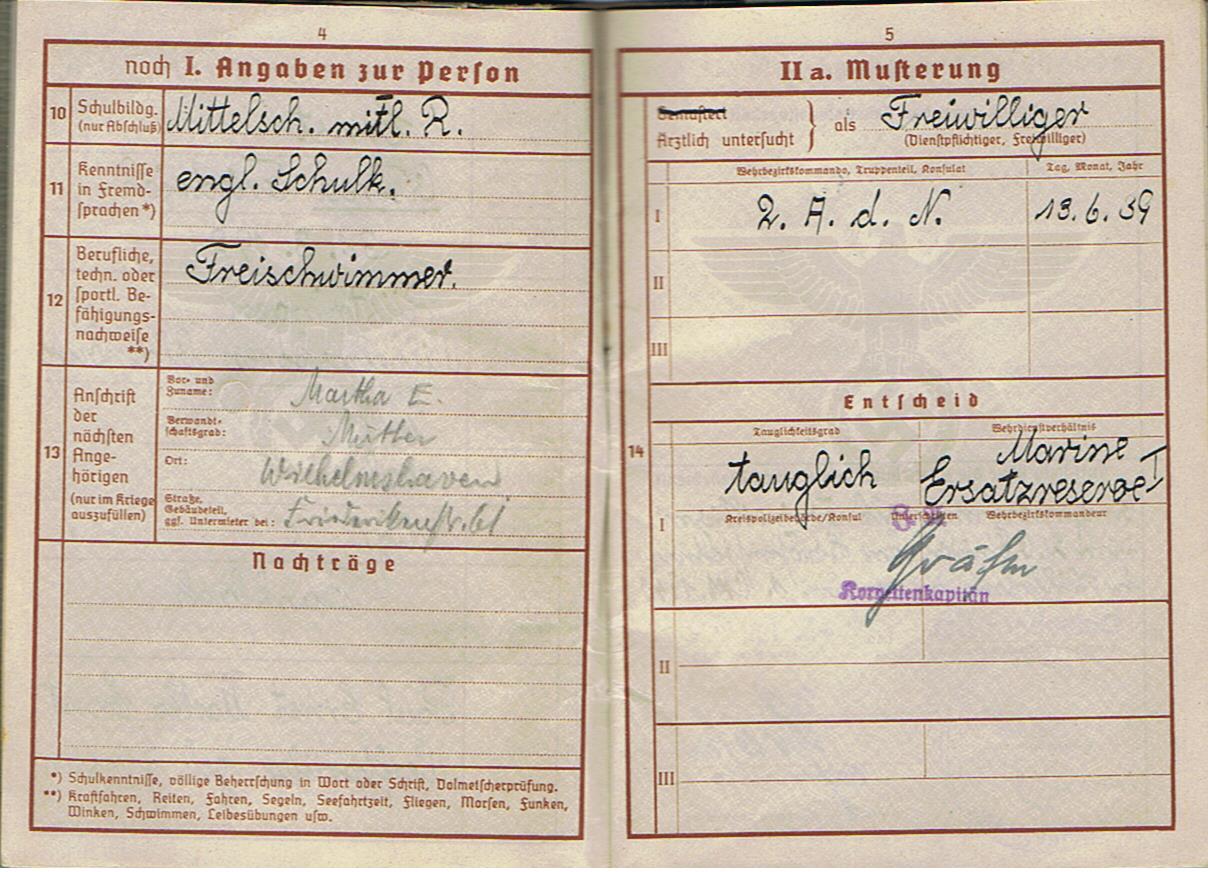 4
noch I. Angaben zur Person
10
Schulbildg.
(nur Abschluß)
Mittelsch. mitl. R.
11
Kenntnisse
in Fremd-
sprachen*)
engl. Schulk.
12
Berufliche,
techn. oder
sportl. Be-
fähigungs-
nachweise
**)
Freischwimmer.
13
Anschrift
der
nächsten
Ange-
hörigen
(nur im Kriege
auszufüllen)
Vor- und
Zuname:
Martha E.
Verwandt-
schaftsgrad:
Mutter
Ort:
Wilhelmshaven
Straße,
Gebäudeteil,
ggf. Untermieter bei:
Nachträge
*) Schulkenntnisse, völlige Beherrschung in Wort oder Schrift, Dolmetscherprüfung.
**) Kraftfahren, Reiten, Fahren, Segeln, Seefahrtzeit, Fliegen, Morsen, Funken,
Winken, Schwimmen, Leibesübungen usw.
5
II a. Musterung
Gemustert
Ärztlich untersucht
als Freiwilliger
(Dienstpflichtiger, Freiwilliger)
Wehrbezirkskommando, Truppenteil, Konsulat
Tag, Monat, Jahr
I
2. A. d. N.
13.6.39
II
III
Entscheid
14
Tauglichkeitsgrad
Wehrdienstverhältnis
tauglich
Marine
Ersatzreserve I
I
Kreispolizeibehörde/Konsul
Unterschriften
Wehrbezirkskommandeur
Korvettenkapitän
II
III